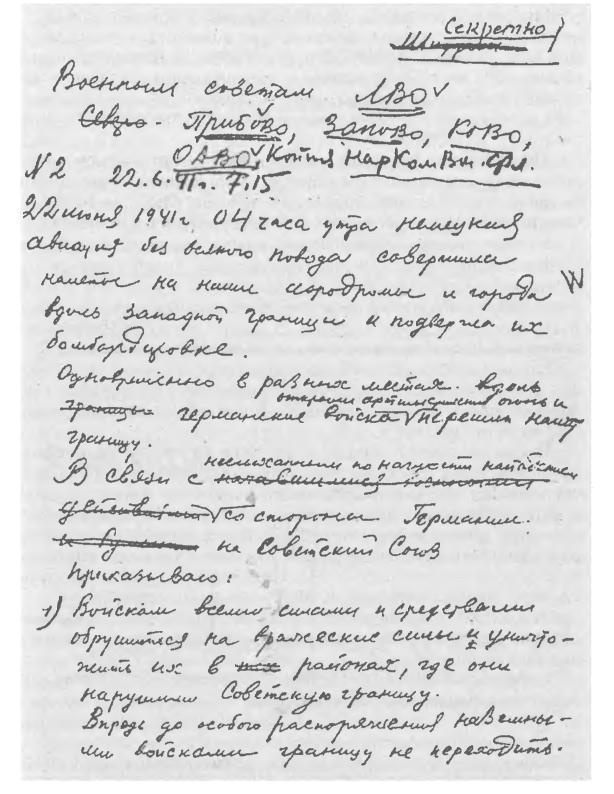 Секретно
Шифром
Военным советам ЛВО
Северо- Прибово, Запово, Ково,
ОдВО, Копия НарКомВМ.фл.
N 2 22.6.41г. 7.15
22 июня 1941г. 04 часа утра немецкая
авиация без всякого повода совершила
налеты на наши аэродромы и города
вдоль западной границы и подвергла их
бомбардировке.
Одновременно в разных местах вдоль
открыли артиллерийский огонь и
границы германские войска перешли нашу
границу.
неслыханным по наглости нападением
В связи с
действий со стороны Германии
на Советский Союз
Приказываю:
1) Войскам всеми силами и средствами
обрушиться на вражеские силы и уничто-
жить их в тех районах, где они
нарушили Советскую границу.
Впредь до особого распоряжения наземны-
ми войсками границу не переходить.
W